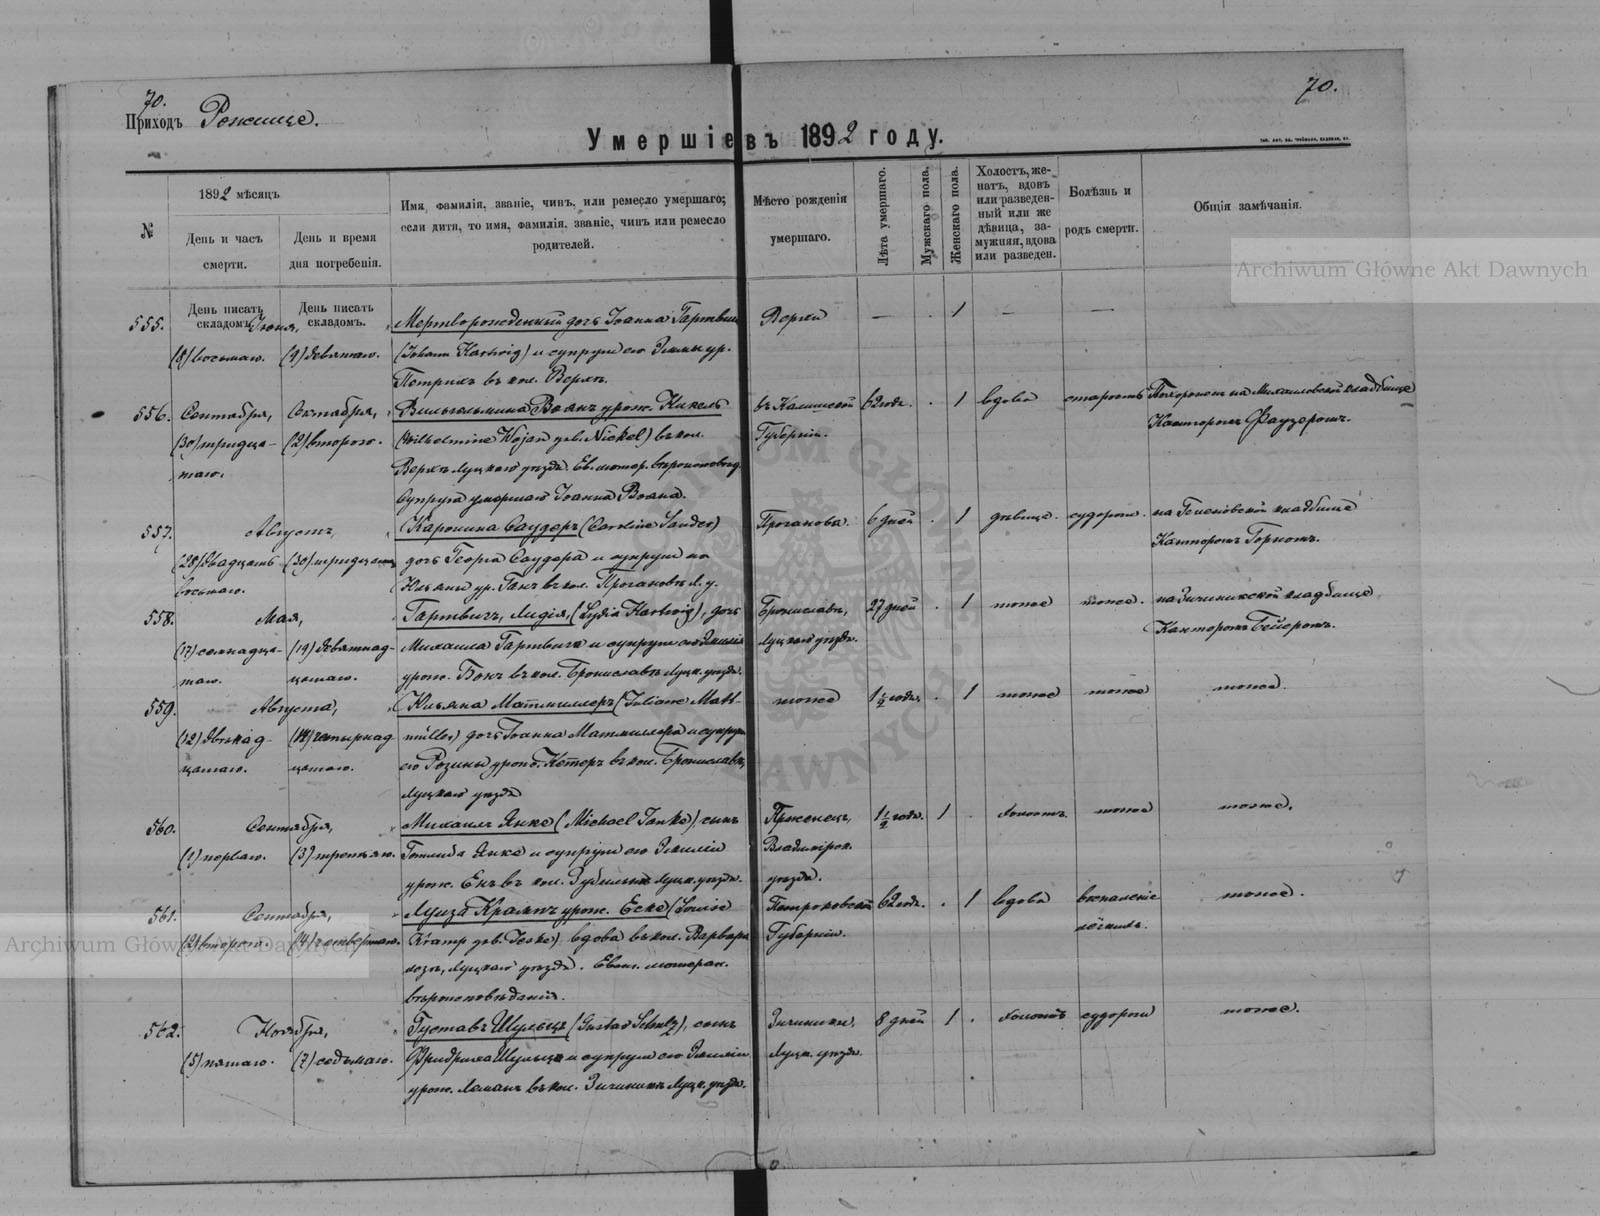 70.
70.
Приходъ Рожище.
Умершіе въ 1892 году.
№
1892 мѣсяцъ
День и часъ смерти.
День и время дня погребенія.
Имя, фамилія, званіе, чинъ, или ремесло умершаго;
если дитя, то имя, фамилія, званіе, чинъ или ремесло
родителей.
Мѣсто рожденія
умершаго.
Лѣта умершаго.
Мужскаго пола.
Женскаго пола.
Холостъ, же-
натъ, вдовъ
или разведен-
ный или же
дѣвица, за-
мужняя, вдова
или разведен.
Болѣзнь и
родъ смерти.
Общія замѣчанія.
Archiwum Główne Akt Dawnych
День писать складомъ.
День писать складомъ.
555. Іюня, Мертворожденный дочь Іоанна Гартвигъ Верхи — . 1 — —
(8) восьмаго. (9) девятаго. (Johann Hartwig) и супруги его Эммы ур.
Петрихъ въ кол. Верхъ.
556. Сентября, Октября, Вильгельмина Воянъ урож. Никель въ Калишской 62 года . 1 вдова старость Похороненъ на Михаиловской кладбище
(30) тридца- (2) второго. (Wilhelmine Wojan geb. Nickel) въ кол. Губерніи. Канторомъ
таго. Верхъ Луцкаго уѣзда. Ев. лютер. вѣроисповѣд.
Супруга умершаго Іоанна Вояна.
557. Августъ, Каролина Саудеръ (Caroline Sauder) Проганова. 6 дней . 1 дѣвица. судороги. на кладбище
(28) двадцать (30) тридцатаго дочь Георга Саудера и супруги его Канторомъ Горномъ.
восьмаго. Юльяны ур. Ганъ въ кол. Прогановъ Л. у.
558. Мая, Гартвигъ, Лидія, (Lydia Hartwig), дочь Брониславъ, 27 дней . 1 тоже тоже. на кладбище
(17) семнадца- (19) девятнад- Михаила Гартвига и супруги его Эмиліи Луцкаго уѣзда. Канторомъ Бейеромъ.
таго. цатаго. урож. Бонъ въ кол. Брониславъ Луцк. уѣзда.
559. Августа, Юльяна Матмиллеръ (Juliane Matt- тоже 1 1/2 года. . 1 тоже тоже тоже.
(12) двѣнад- (14) четырнад- müller) дочь Іоанна Матмиллера и супруги
цатаго. цатаго. его Розины урож. Кеттеръ въ кол. Брониславъ,
Луцкаго уѣзда
560. Сентября, Михаилъ Янке (Michael Janke), сынъ 1 1/2 года. 1 . холостъ. тоже тоже.
(1) перваго. (3) третьяго. Готлиба Янке и супруги его Эмиліи Владимірск.
урож. Енъ въ кол. Луцк. уѣзда. уѣзда.
561. Сентября, Луиза Крампъ урож. Еске (Louise Петроковской 62 года. . 1 вдова воспаленіе тоже.
(2) второго. (4) четвертаго. Kramp geb. Jeske) вдова въ кол. Варвара Губерніи. легкихъ.
Луцкаго уѣзда. Еванг. лютеран.
вѣроисповѣданія.
Archiwum Główne Akt Dawnych
562. Ноября, Густавъ Шульцъ (Gustav Schulz), сынъ 8 дней 1 . холостъ судороги тоже.
(5) пятаго. (7) седьмаго. Фридриха Шульца и супруги его Эмиліи Луцк. уѣзда.
урож. Леманъ въ кол. Луцк. уѣзда.